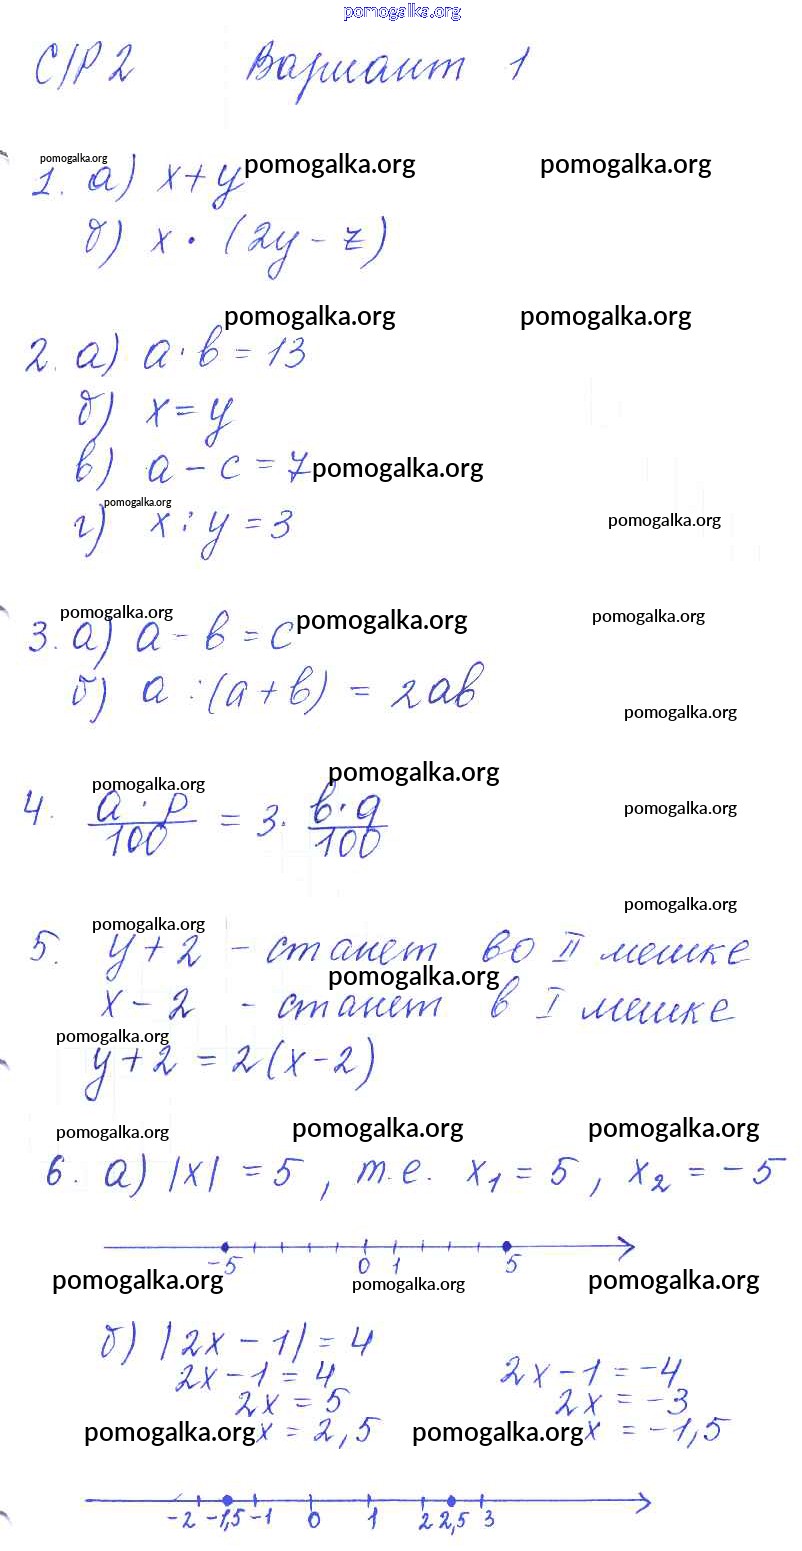 pomogalka.org
С/Р 2 Вариант 1
pomogalka.org pomogalka.org pomogalka.org
1. а) x + y
б) x · (2y - z)
pomogalka.org pomogalka.org
2. а) a · b = 13
б) x = y
в) a - c = 7 pomogalka.org
pomogalka.org
г) x : y = 3 pomogalka.org
pomogalka.org pomogalka.org pomogalka.org
3. а) a - b = c
б) a : (a + b) = 2ab
pomogalka.org
pomogalka.org pomogalka.org
4. a · p / 100 = 3 · b · q / 100
pomogalka.org
pomogalka.org
pomogalka.org
5. y + 2 - станет во II мешке
pomogalka.org
x - 2 - станет в I мешке
pomogalka.org
y + 2 = 2(x - 2)
pomogalka.org pomogalka.org pomogalka.org
6. а) |x| = 5, т.е. x₁ = 5, x₂ = -5
-5 0 1 5
pomogalka.org pomogalka.org pomogalka.org
б) |2x - 1| = 4
2x - 1 = 4 2x - 1 = -4
2x = 5 2x = -3
pomogalka.org x = 2,5 pomogalka.org x = -1,5
-2 -1,5 -1 0 1 2 2,5 3